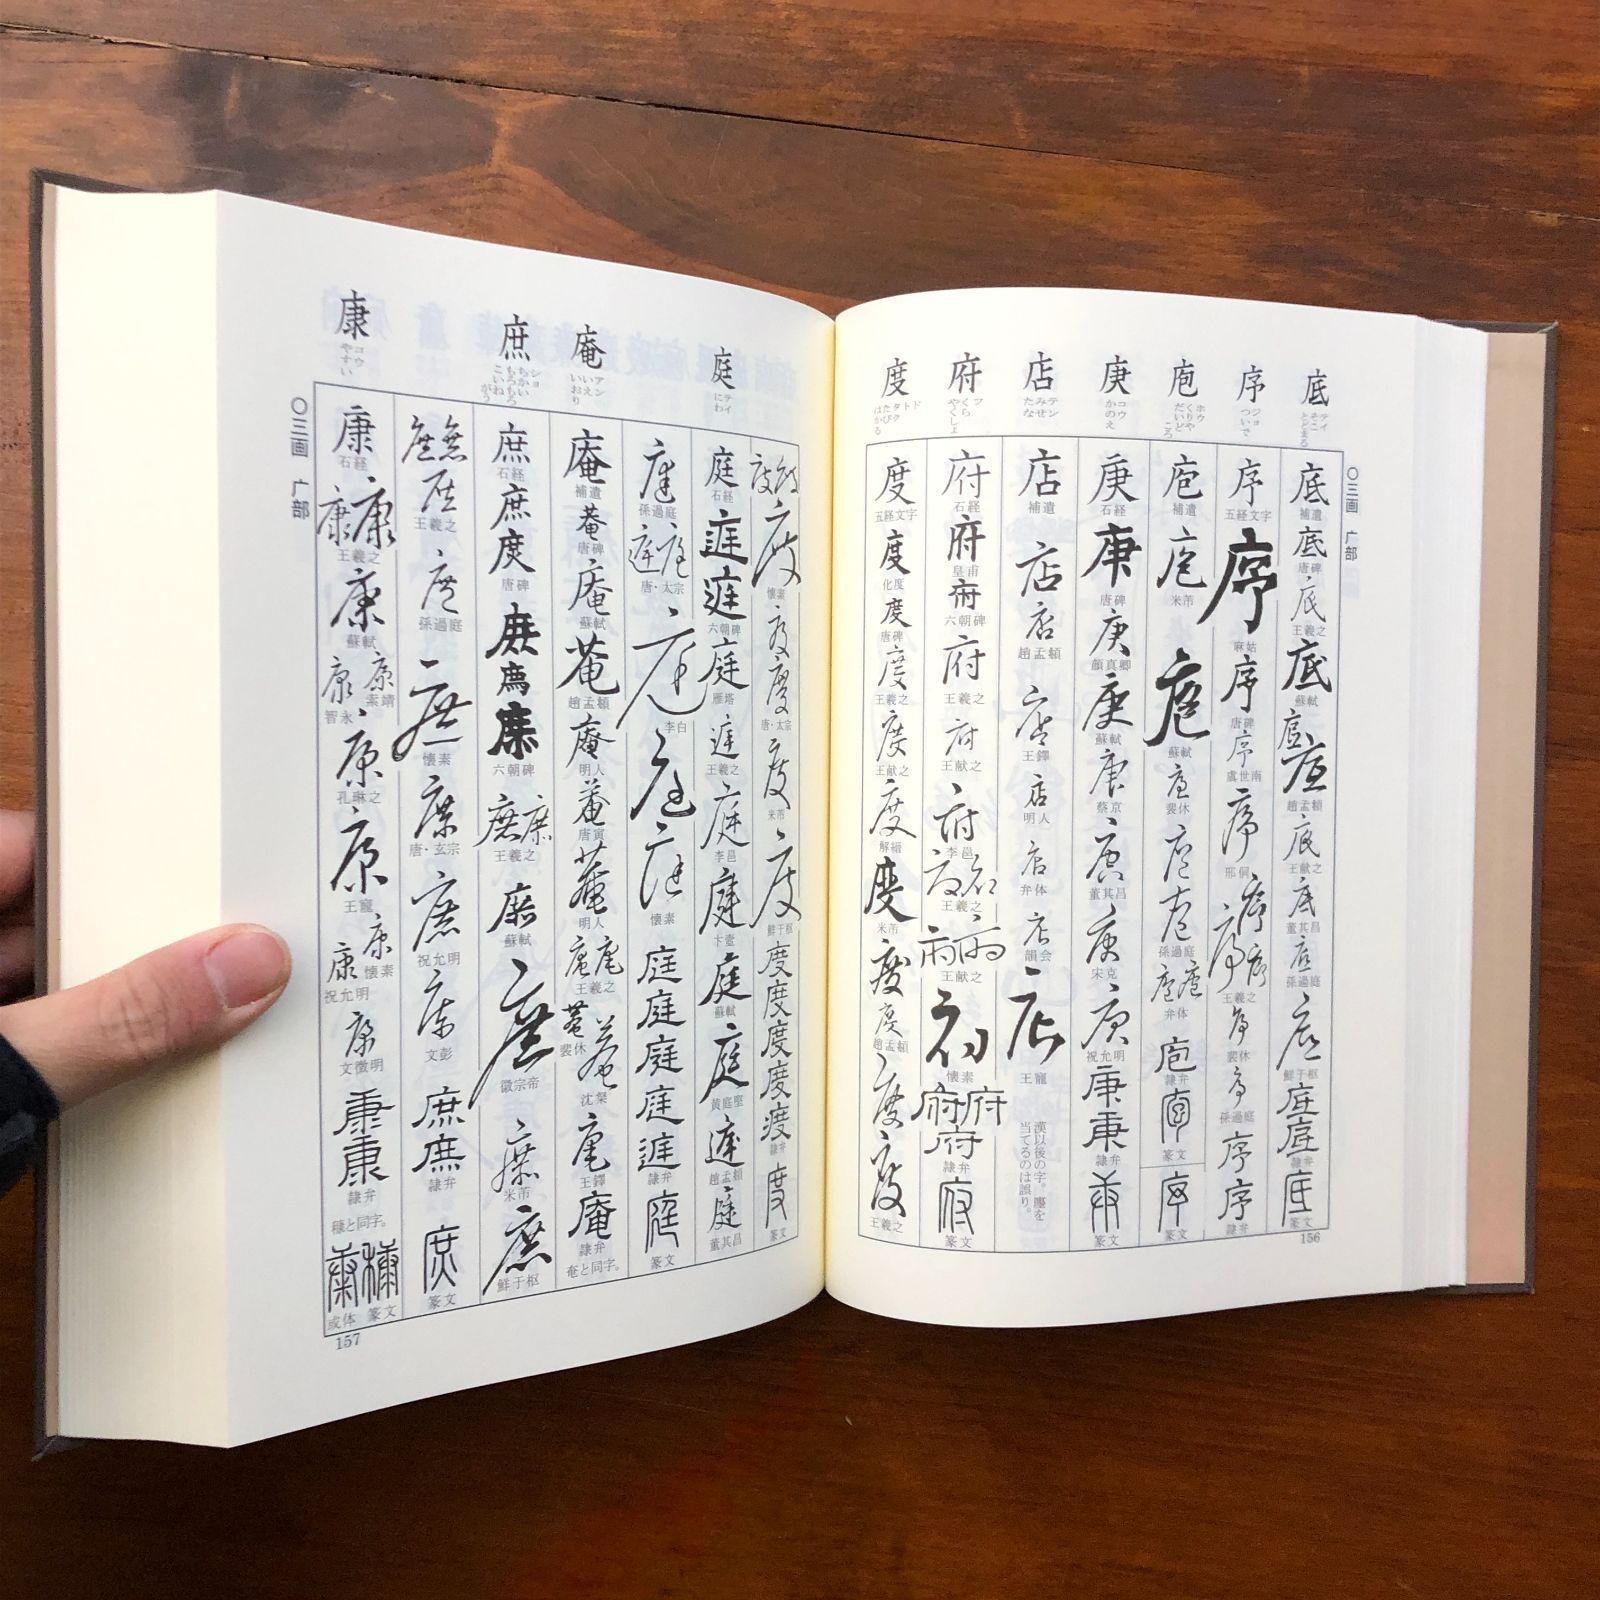 底 テイ そこ とどまる
序 ジョ ついで
庖 ホウ くりや だいどころ
庚 コウ かのえ
店 テン みせ たな
府 フ くら やくしょ
度 ド ト タク たび はかる
〇三画 广部
底 補遺
底 唐碑
底 王羲之
底 蘇軾
底底 趙孟頫
底 王献之
底 董其昌
底 孫過庭
底 鮮于枢
底底 隷弁
底 篆文
序 五経文字
序 麻姑
序 唐碑
序 虞世南
序 邢侗
序序序序 王羲之
序 裴休
序 孫過庭
序序 隷弁
庖 補遺
庖 米芾
庖 蘇軾
庖 裴休
庖庖 孫過庭
庖庖 弁体
庖 隷弁
篆文
庚 石経
庚 唐碑
庚 顔真卿
庚 蘇軾
庚 蔡京
庚 董其昌
庚 宋克
庚 祝允明
庚庚 隷弁
庚 篆文
店 補遺
店店 趙孟頫
店 王鐸
店 明人
店 弁体
店 韻会
店 王寵
漢以後の字。廛を当てるのは誤り。
府 石経
府 皇甫
府 六朝碑
府 王羲之
府 王献之
府 李邕
府府 王羲之
府府 王献之
府 懐素
府府府 隷弁
府 篆文
度 五経文字
度 化度
度 唐碑
度 王羲之
度 王献之
度 解縉
度 米芾
度度 趙孟頫
度度 王羲之
156
庭 テイ にわ
庵 アン いえ いおり
庶 ショ ちかい もろもろ こいねがう
康 コウ やすい
度度度 懐素
度度 唐・太宗
度 米芾
度 鮮于枢
度度度度度 隷弁
度 篆文
庭 石経
庭庭 六朝碑
庭 雁塔
庭 王羲之
庭 李邕
庭 卞壼
庭 蘇軾
庭 黄庭堅
庭 趙孟頫
庭 董其昌
庭 孫過庭
庭庭 唐・太宗
庭 李白
庭庭 懐素
庭庭庭庭庭 隷弁
庭 篆文
庵 補遺
菴 唐碑
庵 蘇軾
菴 趙孟頫
庵 明人
菴 唐寅
菴 明人
庵庵 王羲之
菴 裴休
菴 沈粲
庵 王鐸
庵 隷弁
奄と同字。
庶 石経
庶庶 唐碑
庶庶庶 六朝碑
庶庶 王羲之
庶 蘇軾
庶 徽宗帝
庶 米芾
庶 鮮于枢
庶庶庶 王羲之
庶 孫過庭
庶 懐素
庶 唐・玄宗
庶 祝允明
庶 文彭
庶庶 隷弁
庶 篆文
康 石経
康康 王羲之
康 蘇軾
康 索靖
康 智永
康 孔琳之
康 王寵
康 懐素
康 祝允明
康 文徴明
康康 隷弁
穅と同字。
穅 篆文
或体
〇三画 广部
157